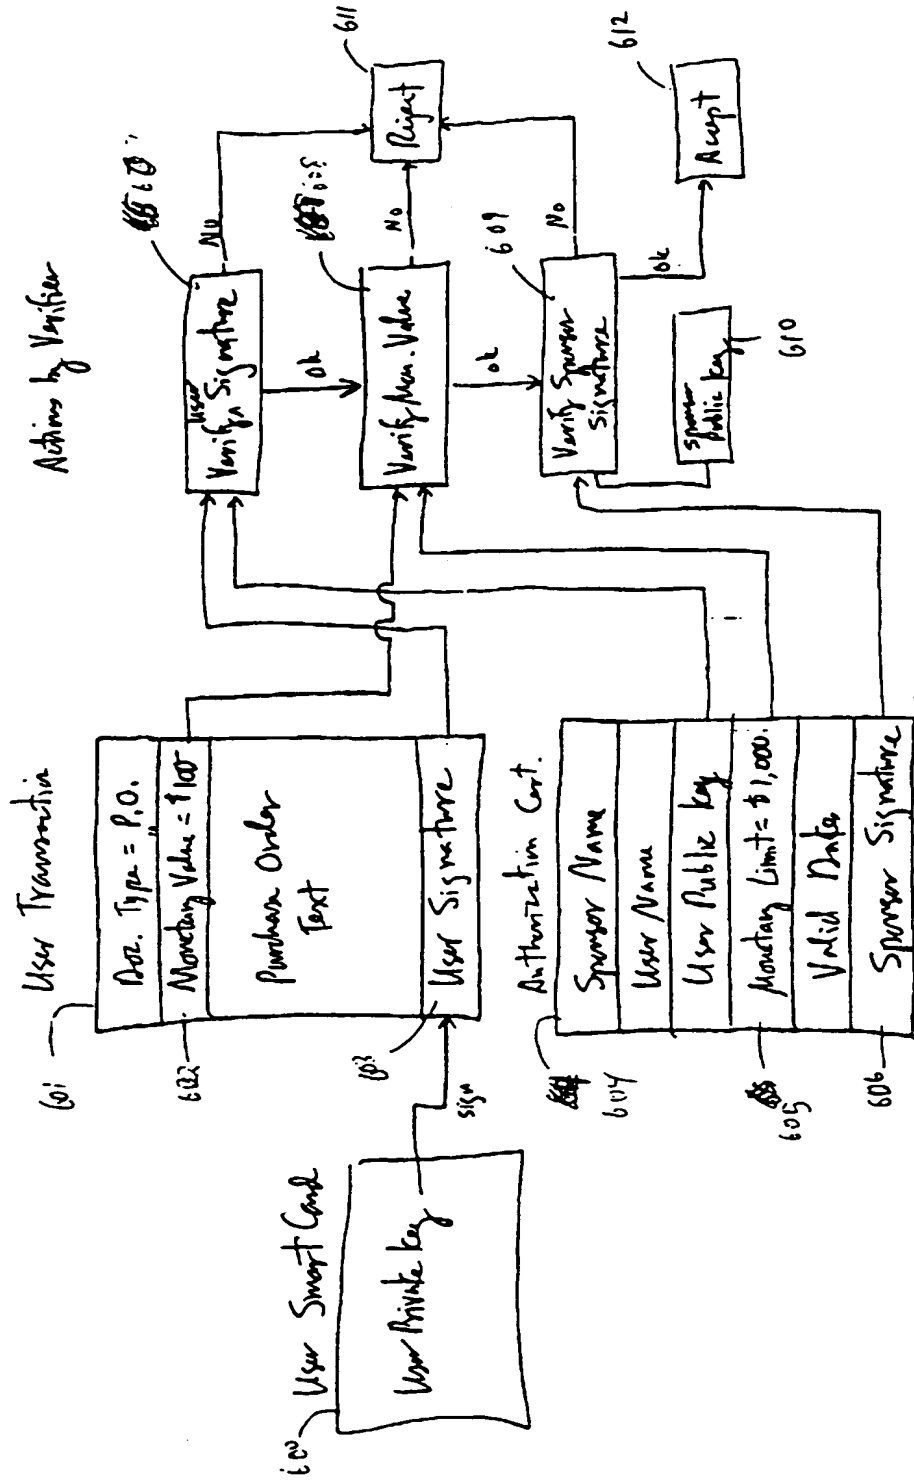 User Smart Card
600
User Private Key
sign
User Transaction
601
Doc. Type = P.O.
Monetary Value = $100
602
Purchase Order
Text
603
User Signature
Authorization Cert.
604
Sponsor Name
User Name
User Public Key
Monetary Limit = $1,000.
605
Valid Dates
Sponsor Signature
606
Actions by Verifier
User
Verify Signature
No
Ok
Verify Mon. Value
No
Ok
609
Verify Sponsor
Signature
No
Ok
Sponsor
Public Key
610
611
Reject
612
Accept